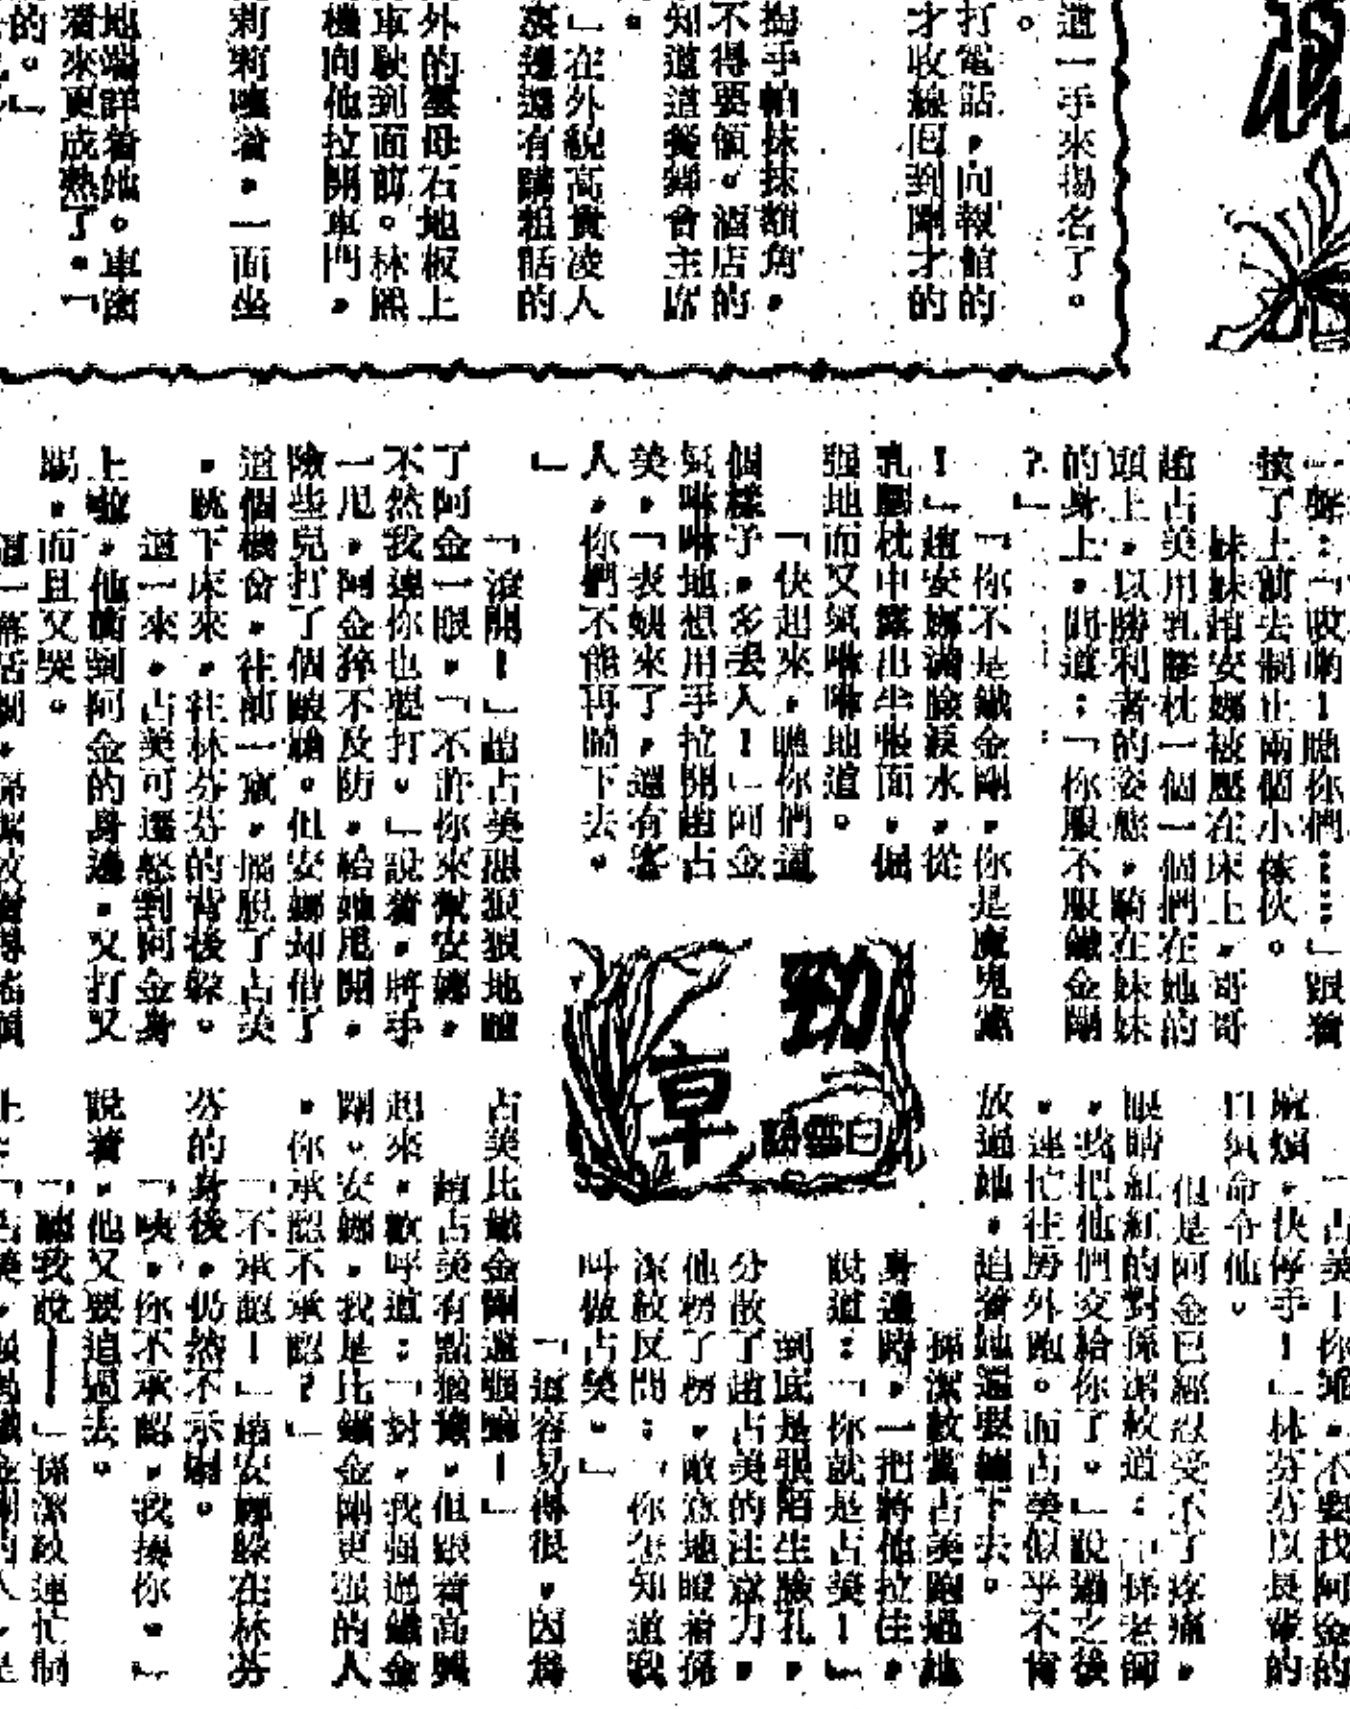 這一手來揚名了。
打電話，向報館的
才收線回到剛才的
掏手帕抹抹額角，
不得要領。酒店的
知道這餐舞會主席
。
」在外貌高貴凌人
裏邊還有講粗話的
外的雲母石地板上
車駛到面前。林熙
機向他拉開車門，
莉莉嚷着，一面坐
地端詳着她。車窗
看來更成熟了。「
的。」
一聲：「哎喲！瞧你們……」跟着
撲了上前去制止兩個小傢伙。
妹妹趙安娜被壓在床上，哥哥
趙占美用乳膠枕一個一個擲在她的
頭上，以勝利者的姿態，騎在妹妹
的身上，問道：「你服不服鐵金剛
？」
「你不是鐵金剛，你是魔鬼黨
！」趙安娜滿臉淚水，從
乳膠枕中露出半張面，倔
強地而又氣咻咻地道。
「快起來，瞧你們這
個樣子，多丟人！」阿金
氣咻咻地想用手拉開趙占
美，「表姨來了，還有客
人，你們不能再鬧下去。
」
「滾開！」趙占美惡狠狠地瞪
了阿金一眼，「不許你來幫安娜，
不然我連你也要打。」說着，將手
一甩，阿金猝不及防，給她甩開，
險些兒打了個踉蹌。但安娜却借了
這個機會，往前一竄，掙脫了占美
，跳下床來，往林芬芬的背後躲。
這一來，占美可遷怒到阿金身
上啦，他衝到阿金的身邊，又打又
踢，而且又哭。
勁草
「占美！你乖，不要找阿金的
麻煩，快停手！」林芬芬以長輩的
口氣命令他。
但是阿金已經忍受不了疼痛，
眼睛紅紅的對孫潔紋道：「孫老師
，我把他們交給你了。」說過之後
，連忙往房外跑。而占美似乎不肯
放過她，追着她還要纏下去。
孫潔紋當占美跑過她
身邊時，一把將他拉住，
說道：「你就是占美！」
到底是張陌生臉孔，
分散了趙占美的注意力，
他楞了楞，敵意地瞪着孫
潔紋反問：「你怎知道我
叫做占美。」
「這容易得很，因為
占美比鐵金剛還強嘛！」
趙占美有點猶豫，但跟着高興
起來，歡呼道：「對，我強過鐵金
剛。安娜，我是比鐵金剛更強的人
，你承認不承認？」
「不承認！」趙安娜躲在林芬
芬的身後，仍然不示弱。
「咦，你不承認，我揍你。」
說着，他又要追過去。
「聽我說——」孫潔紋連忙制